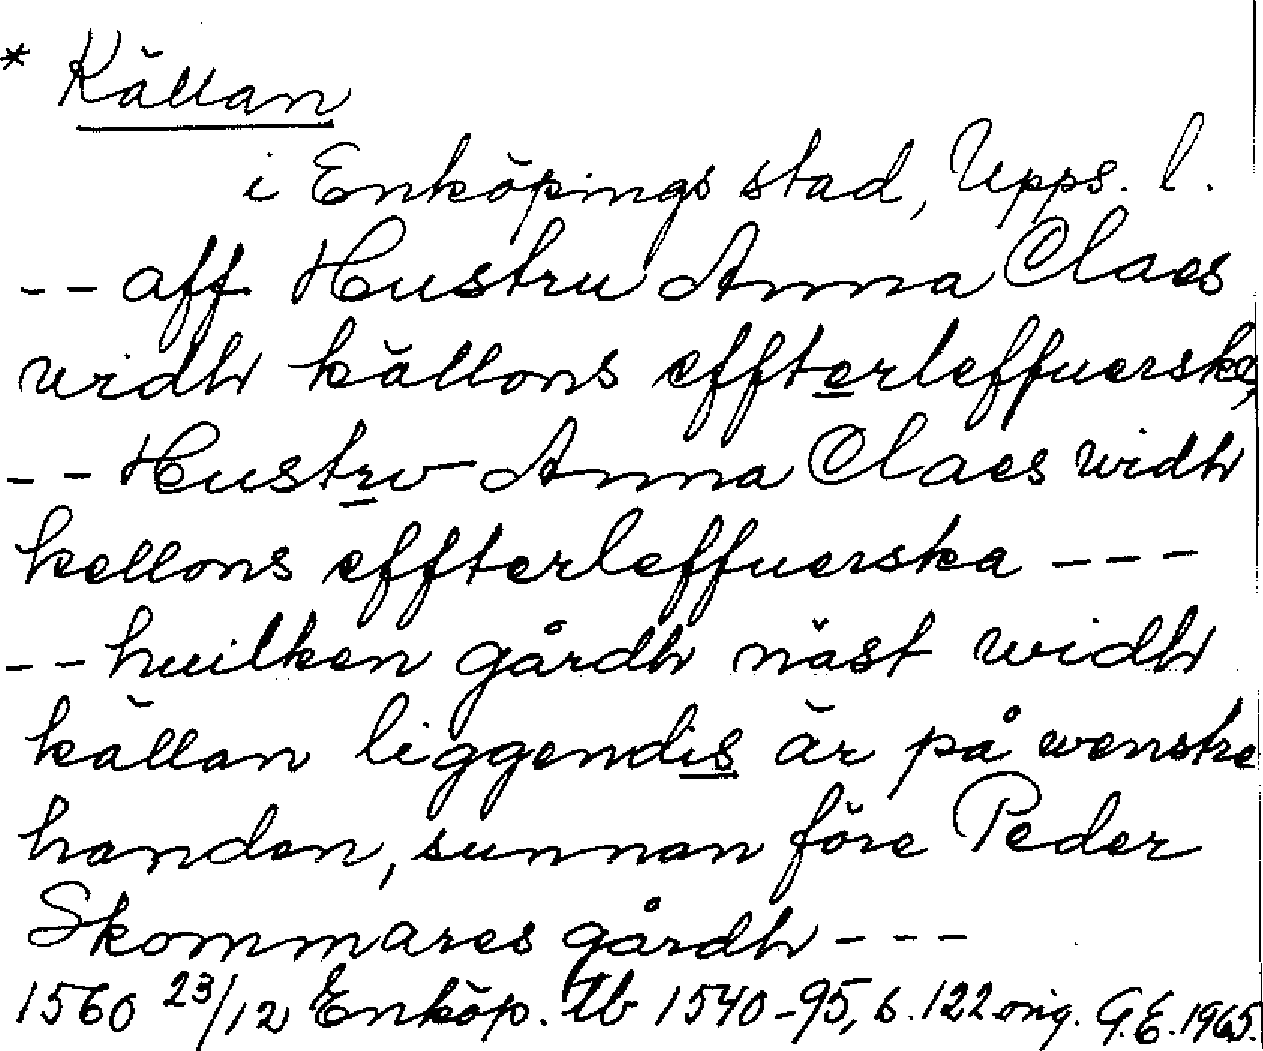 * Källan
i Enköpings stad, Upps. l.
-- aff Hustru Anna Claes
widh källons effterleffuerska,
-- Hustrv Anna Claes widh
kellons effterleffuerska ---
-- huilken gårdh näst widh
källan liggendis är på wenstre
handen, sunnan före Peder
Skommares gårdh ---
1560 23/12 Enköp. tb 1540-95, s. 122 orig. G.E. 1965.